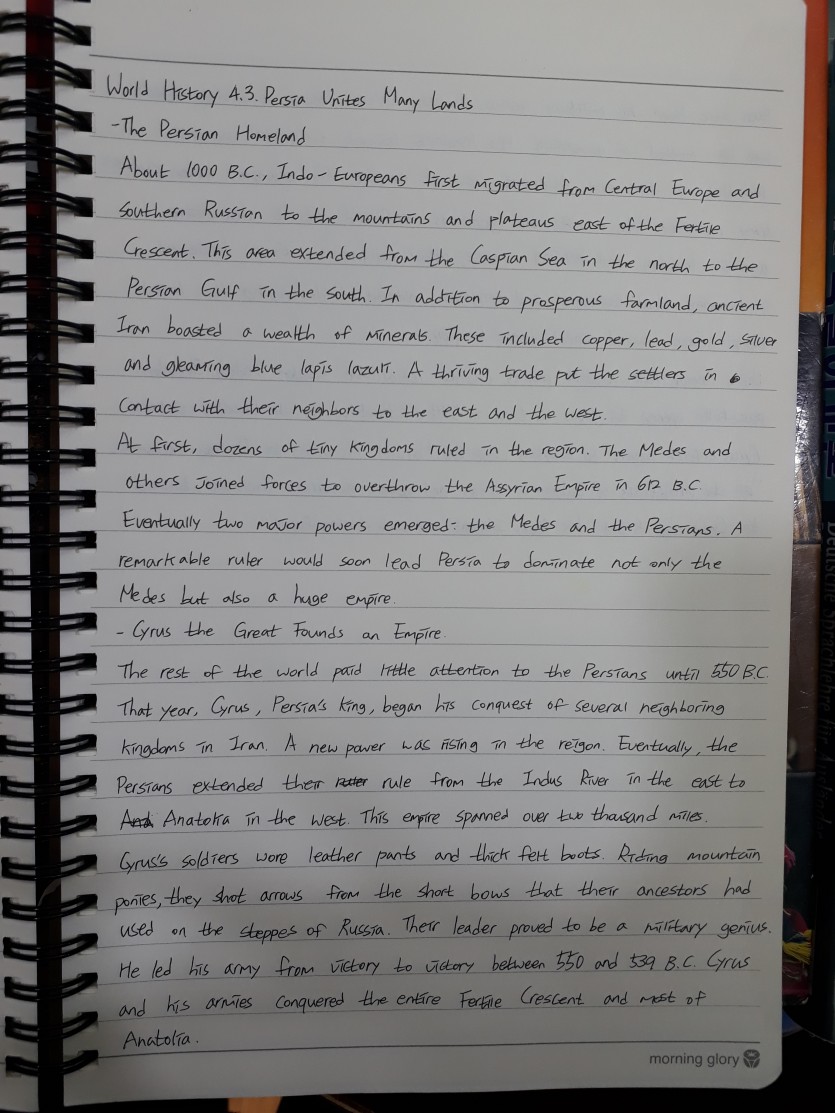 World History 4.3. Persia Unites Many Lands
-The Persian Homeland
About 1000 B.C., Indo-Europeans first migrated from Central Europe and
Southern Russian to the mountains and plateaus east of the Fertile
Crescent. This area extended from the Caspian Sea in the north to the
Persian Gulf in the south. In addition to prosperous farmland, ancient
Iran boasted a wealth of minerals. These included copper, lead, gold, silver
and gleaming blue lapis lazuli. A thriving trade put the settlers in
Contact with their neighbors to the east and the west.
At first, dozens of tiny kingdoms ruled in the region. The Medes and
others joined forces to overthrow the Assyrian Empire in 612 B.C.
Eventually two major powers emerged: the Medes and the Persians. A
remarkable ruler would soon lead Persia to dominate not only the
Medes but also a huge empire.
- Cyrus the Great Founds an Empire.
The rest of the world paid little attention to the Persians until 550 B.C.
That year, Cyrus, Persia's king, began his conquest of several neighboring
kingdoms in Iran. A new power was rising in the reigon. Eventually, the
Persians extended their ruler rule from the Indus River in the east to
And Anatolia in the west. This empire spanned over two thousand miles.
Cyrus's soldiers wore leather pants and thick felt boots. Riding mountain
ponies, they shot arrows from the short bows that their ancestors had
used on the steppes of Russia. Their leader proved to be a military genius.
He led his army from victory to victory between 550 and 539 B.C. Cyrus
and his armies conquered the entire Fertile Crescent and most of
Anatolia.
morning glory